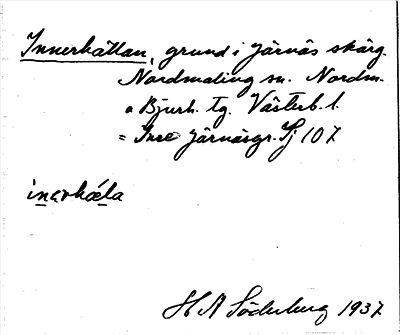 Innerhällan, grund i Järnäs skärg.
Nordmaling sn. Nordm.
o Bjurh. tg. Västerb. l.
= Inre Järnäsgr. Sj 107
inerhæla
H A Söderberg 1937